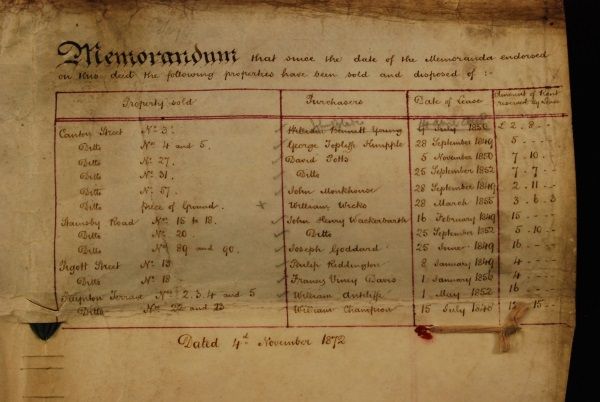 Memorandum that since the date of the Memoranda endorsed
on this deed the following properties have been sold and disposed of :-
Property sold Purchasers Date of Lease Amount of Rent reserved by Lease
Canton Street No. 3. William Bennett Young July 1850 £2 . 8 . -
Ditto No. 4 and 5. George Topliss 28 September 1849 5 . - . -
Ditto No. 27. David Potts 5 November 1850 7 . 10 . -
Ditto No. 31. Ditto 25 September 1852 7 . 7 . -
Ditto No. 57. John Monkhouse 28 September 1849 2 . 11 . -
Ditto piece of Ground. x William Wicks 28 March 1865 3 . 6 . 3
Stainsby Road No. 15 to 18. John Henry Wackerbarth 16 February 1849 15 . - . -
Ditto No. 20. Ditto 25 September 1852 5 . 10 . -
Ditto No. 89 and 90. Joseph Goddard 25 June 1849 16 . - . -
Pigott Street No. 13 Philip Reddington 8 January 1849 4 . - . -
Ditto No. 18 Francis Viney Davis 1 January 1856 4 . - . -
Terrace Nos. 2. 3. 4 and 5 William 1 May 1852 16 . - . -
Ditto Nos. 22 and 23 William Champion 15 July 12 . 15 . -
Dated 4th November 1872